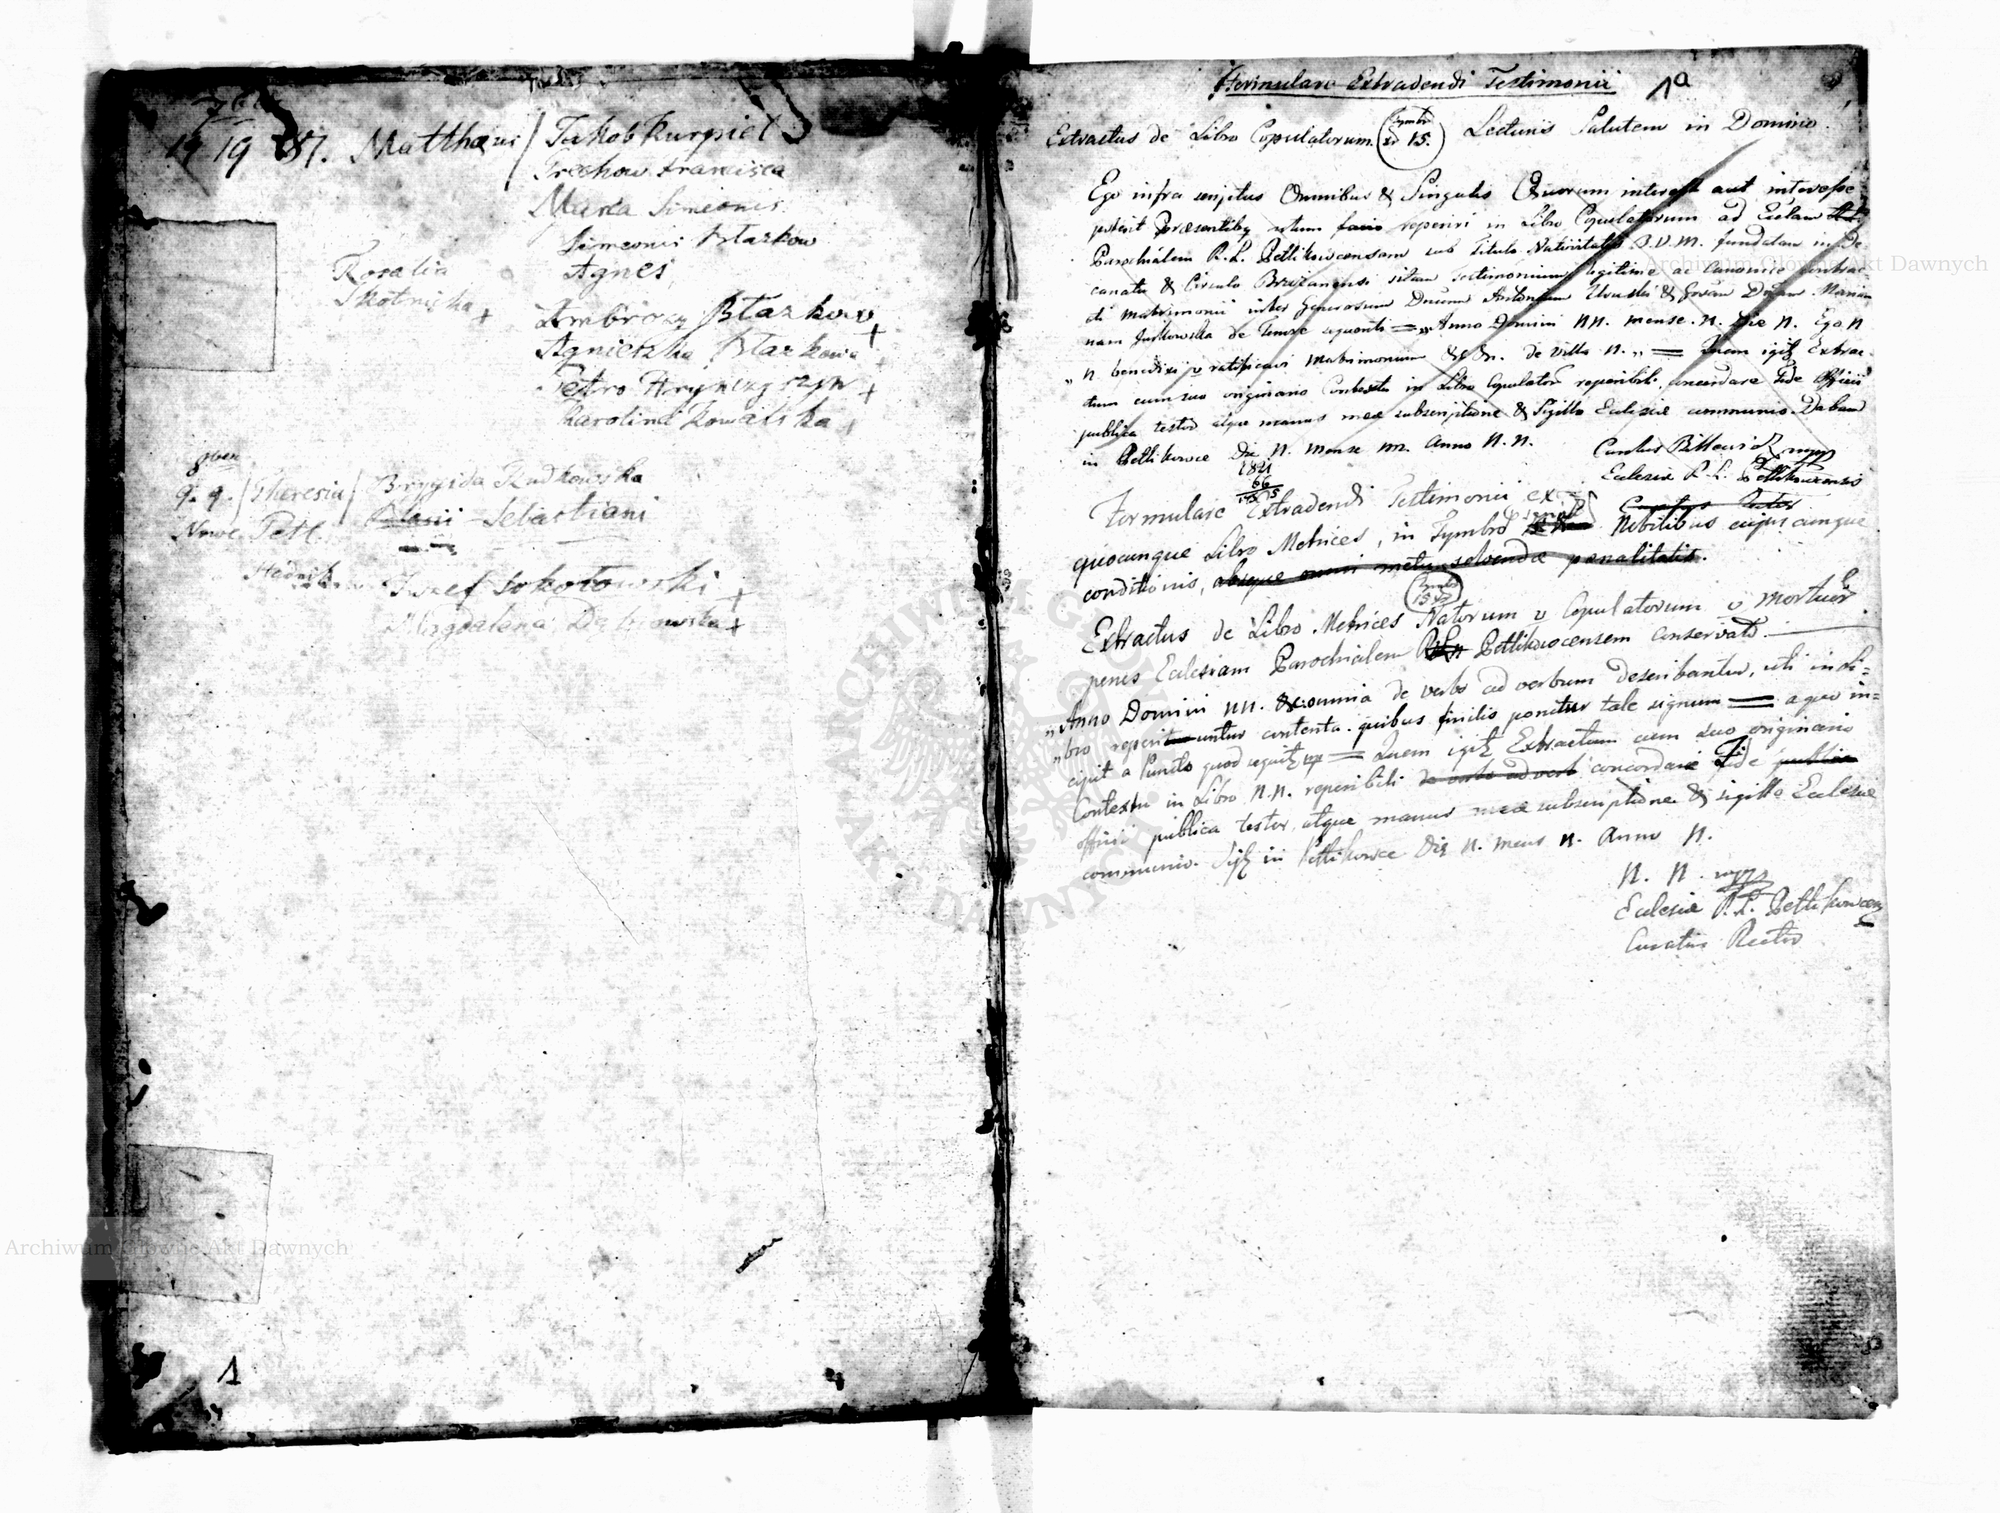 7br
19 19 87. Matthæus Jakob Kurpiel
Grechow Francisca
Maria Simeonis
Simeonis Błazkow
Rosalia Agnes
Skotnicka +
Ambrozy Błazkow +
Agnieszka Błazkowa +
Petro Hryńczyszyn +
Karolina Kowalska +
9ber
9. 9. Theresia Brygida Rudkowska
Blasii Sebastiani
Nowe Petl.
Hadnik
Jozef Sokołowski +
Magdalena Dąbrowska +
1
Formulare Extradendi Testimonii 1a
Extractus de Libro Copulatorum. Symbr. xr 15. Lecturis Salutem in Domino.
Ego infra scriptus Omnibus & Singulis Quorum interest aut interesse
poterit Præsentibq notum facio reperiri in Libro Copulatorum ad Eclam
Parochialem R. L. Petlikowcensem sub Titulo Nativitatis B.V.M. fundatam in De
canatu & Circulo Brzezanensi sitam testimonium legitime ac canonice contrac
ti Matrimonii inter Generosum Dnum Antonium Uruski & Gosam Dnam Marian
nam Jurkowska de Tenore sequenti = „Anno Domini NN. mense. N. Die N. Ego N
„N benedixi v ratificavi Matrimonium &c &c. de Villa N.„ = Quem igitz Extrac
tum cum suo originario Contextu in Libro Copulator reperibili, concordare Fide Officii
publica testor atque manus meæ subscriptione & Sigillo Eclesiæ communio. Dabam
in Petlikowce Die N. Mense N. Anno N.N.
Eclesiæ R. L. Petlikowcensis
Curatus Rector
1821
66
Formulare Extradendi Testimonii ex
quocunque Libro Metrices, in Symbro Nobilibus cujuscunque
conditionis, absque omni metu solvendæ penalitatis.
15 xr
Extractus de Libro Metrices Natorum v Copulatorum v Mortuor
penes Eclesiam Parochialem Petlikowcensem conservato.
„Anno Domini NN. &c. omnia de verbo ad verbum describantur, uti in Li-
„bro reperiuntur contenta. quibus finitis ponitur tale signum = a quo in-
cipit a Puncto quod sequitz = Quem igitz Extractum cum suo originario
Contextu in Libro N.N. reperibili de verbo ad verb concordare Fide publica
officii publica testor, atque manus meæ subscriptione & sigillo Eclesiæ
communio. Sigz in Petlikowce Die N. mens N. Anno N.
N. N. mpp
Eclesiæ R. L. Petlikowcen
Curatus Rector
Archiwum Główne Akt Dawnych
Archiwum Główne Akt Dawnych
ARCHIWUM GŁÓWNE AKT DAWNYCH